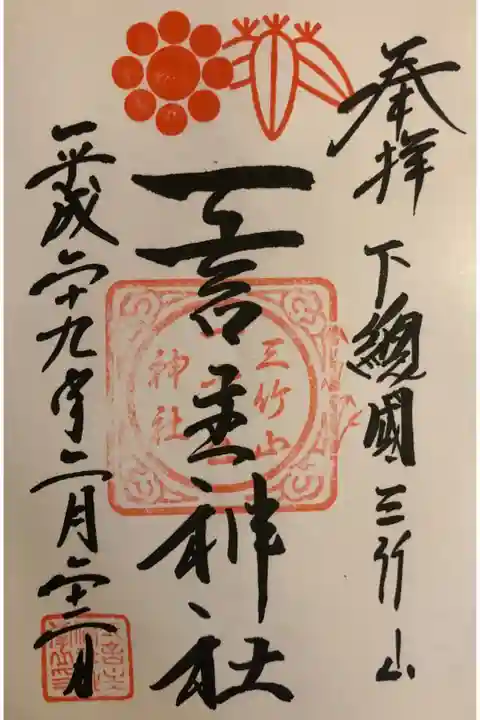 奉拝
下總國三竹山
一言主神社
平成二十九年二月二十二日
三竹山
神社